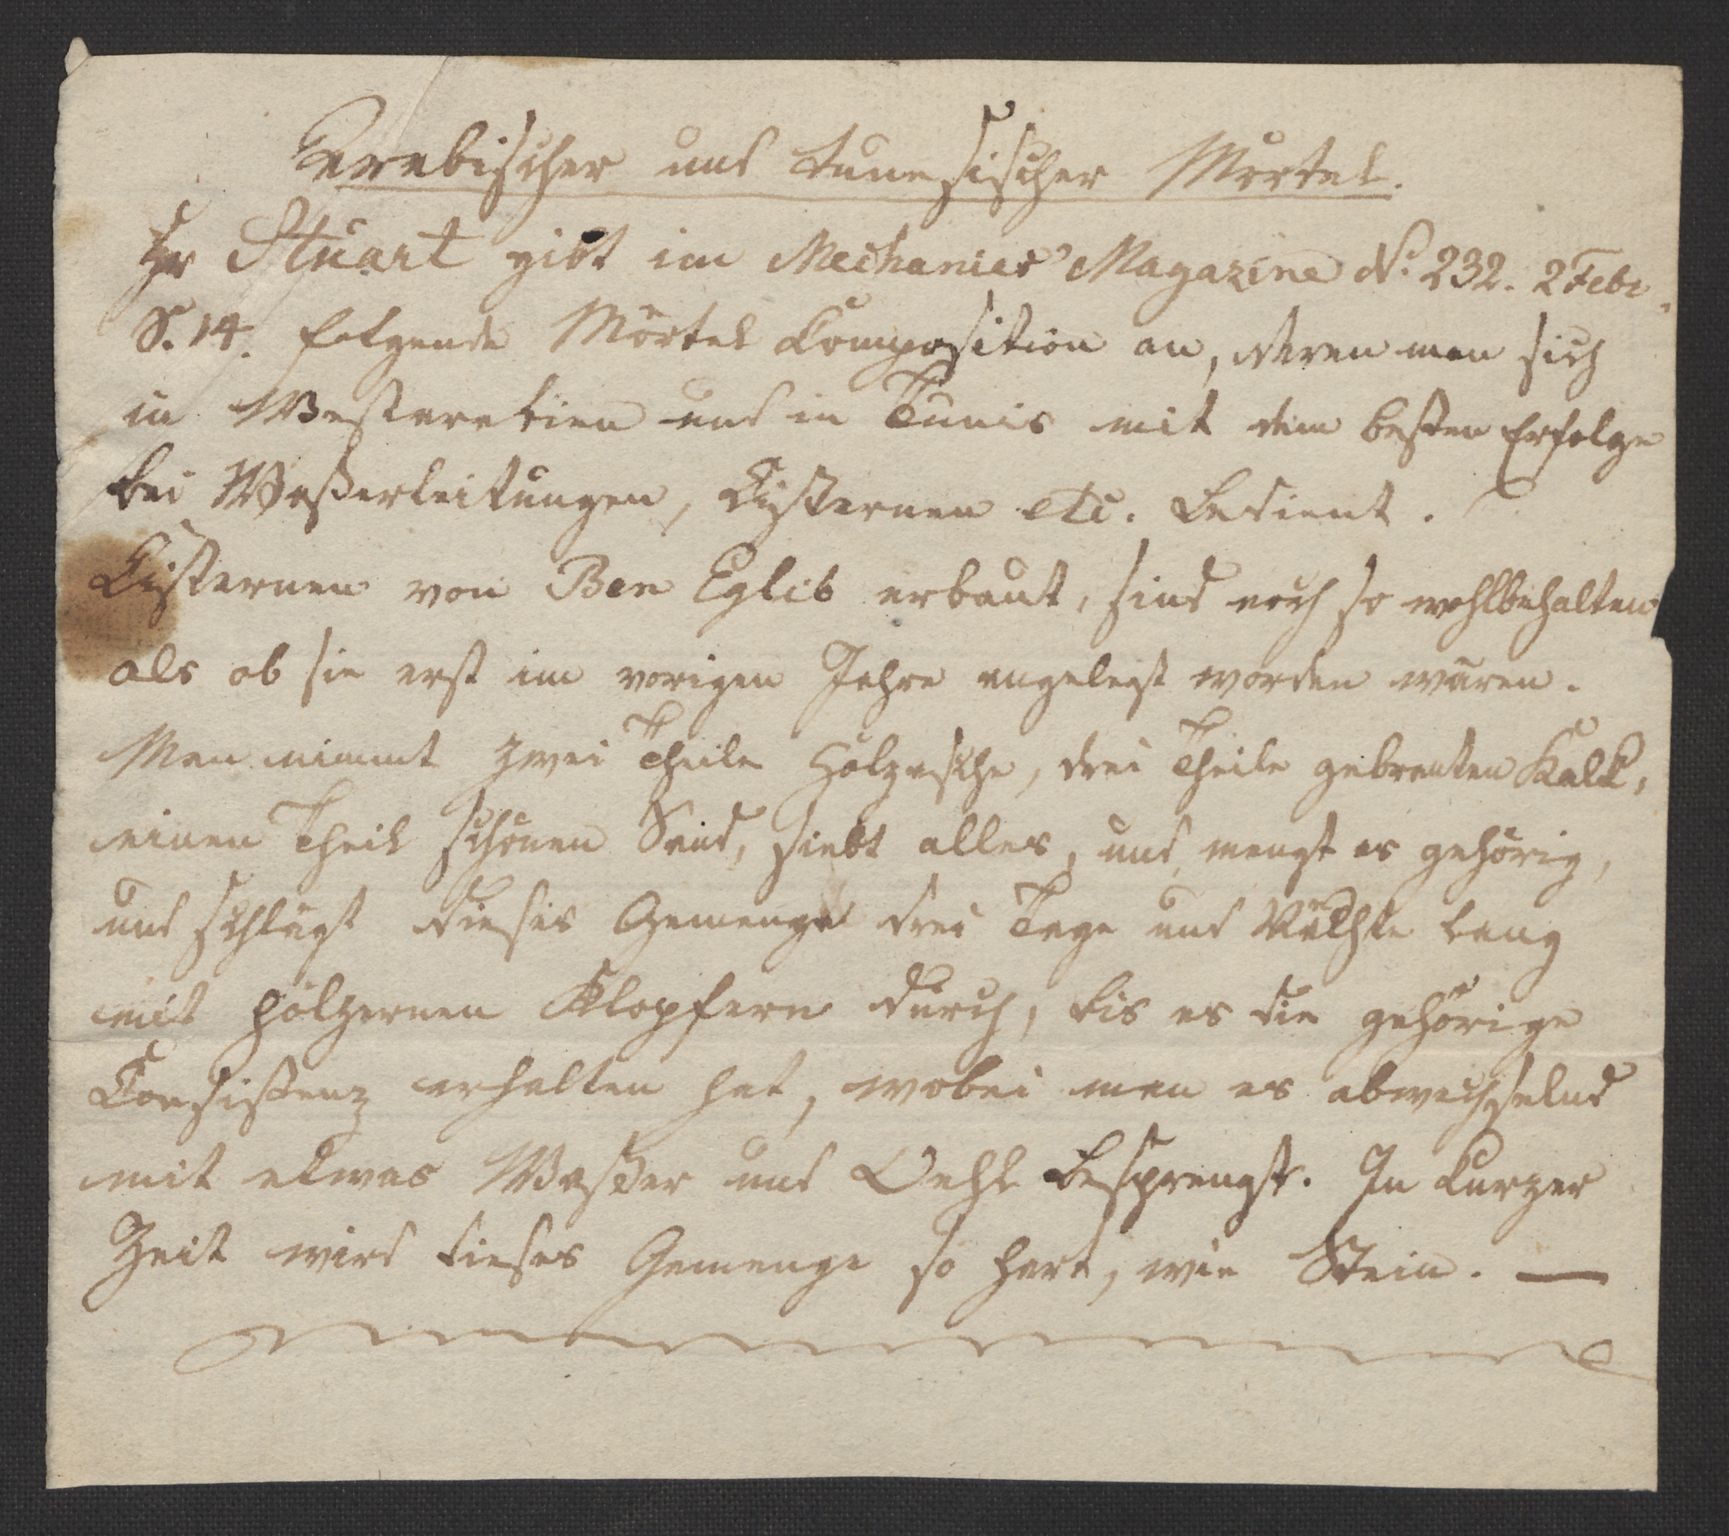 Arabischer und tunesischer Mörtel.
Hr Stuart gibt im Mechanics' Magazine No. 232. 2 Febr.
S. 14. folgende Mörtel Composition an, deren man sich
in Westarabien und in Tunis mit dem besten Erfolge
bei Waßerleitungen, Cysternen etc. bedient.
Cisternen von Ben Eglib erbaut, sind noch so wohlbehalten
als ob sie erst im vorigen Jahre angelegt worden wären.
Man nimmt zwei Theile Holzasche, drei Theile gebranten Kalk,
einen Theil schönen Sand, siebt alles, und mengt es gehörig,
und schlägt dieses Gemenge drei Tage und Nächte lang
mit hölzernen Klopfern durch, bis es die gehörige
Consistenz erhalten hat, wobei man es abwechselnd
mit etwas Waßer und Oehl besprengt. In kurzer
Zeit wird dieses Gemenge so hart, wie Stein. —